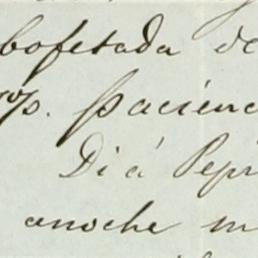 bofetada de
pacienc
Di á Pepi
anoche m